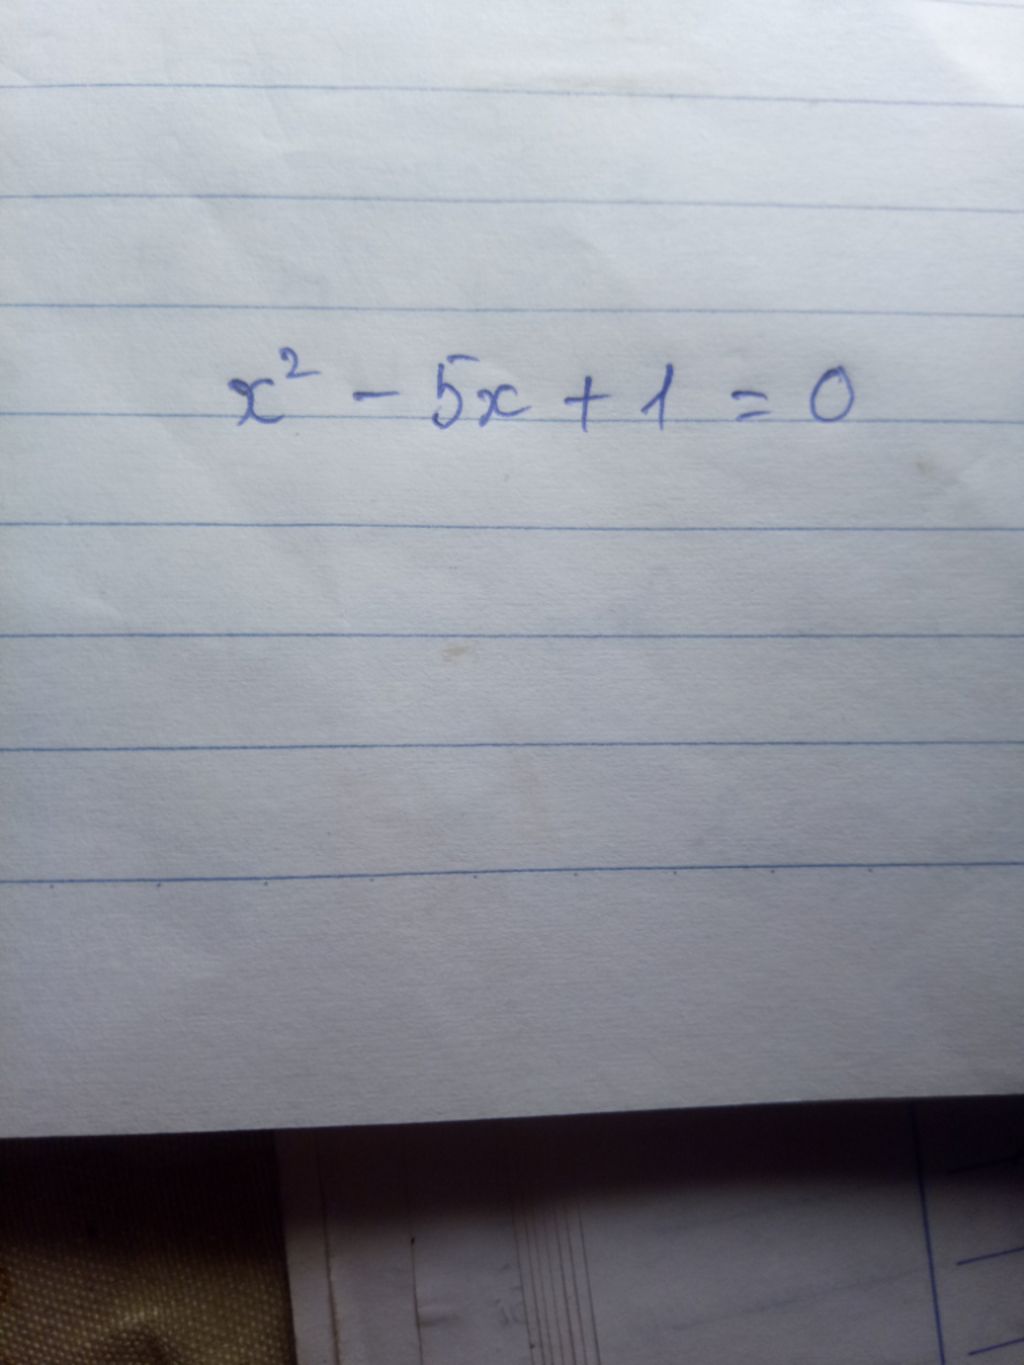 x² - 5x + 1 = 0